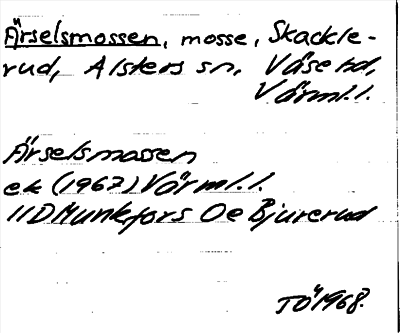 Ärselsmossen, mosse, Skackle-
rud, Alsters sn, Väse hd,
Värml.l.
Ärselsmossen
ek (1967) Värml.l.
11D Munkfors Oe Bjurerud
TÖ 1968.